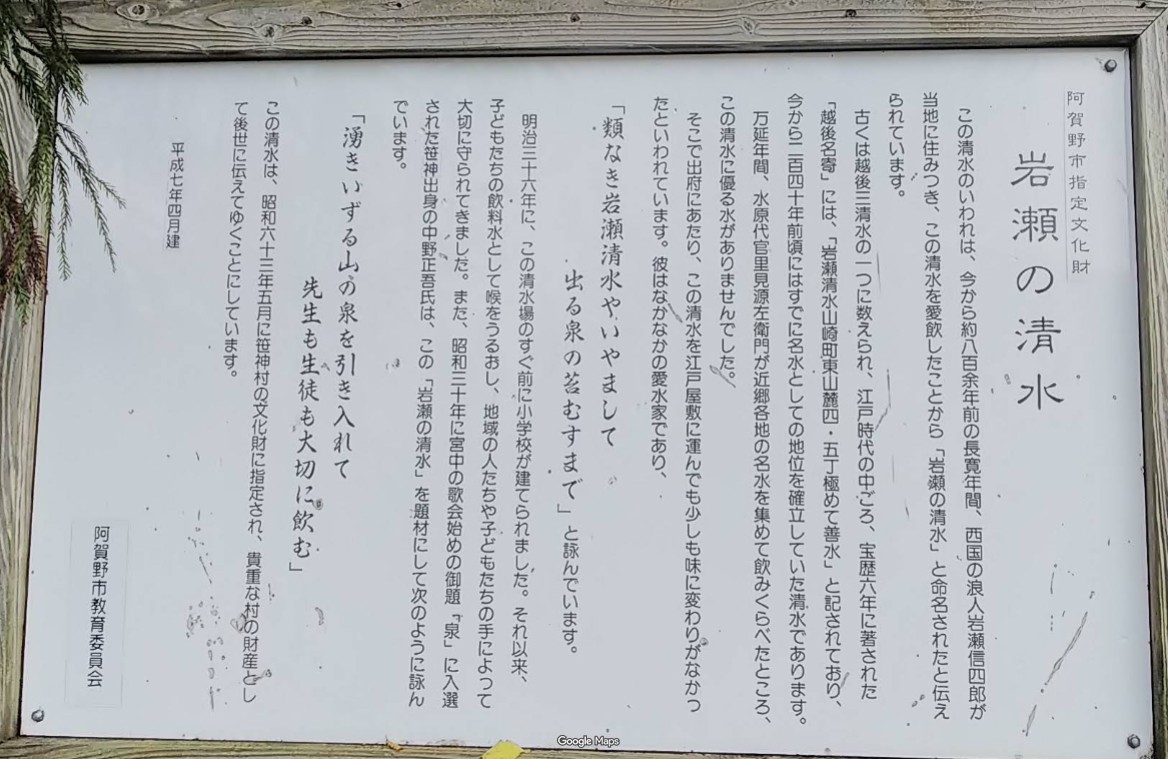 阿賀野市指定文化財
岩瀬の清水
この清水のいわれは、今から約八百余年前の長寛年間、西国の浪人岩瀬信四郎が
当地に住みつき、この清水を愛飲したことから「岩瀬の清水」と命名されたと伝え
られています。
古くは越後三清水の一つに数えられ、江戸時代の中ごろ、宝歴六年に著された
「越後名寄」には、「岩瀬清水山崎町東山麓四・五丁極めて善水」と記されており、
今から二百四十年前頃にはすでに名水としての地位を確立していた清水であります。
万延年間、水原代官里見源左衛門が近郷各地の名水を集めて飲みくらべたところ、
この清水に優る水がありませんでした。
そこで出府にあたり、この清水を江戸屋敷に運んでも少しも味に変わりがなかっ
たといわれています。彼はなかなかの愛水家であり、
「類なき岩瀬清水やいやまして
出る泉の苔むすまで」と詠んでいます。
明治三十六年に、この清水場のすぐ前に小学校が建てられました。それ以来、
子どもたちの飲料水として喉をうるおし、地域の人たちや子どもたちの手によって
大切に守られてきました。また、昭和三十年に宮中の歌会始めの御題「泉」に入選
された笹神出身の中野正吾氏は、この「岩瀬の清水」を題材にして次のように詠ん
でいます。
「湧きいずる山の泉を引き入れて
先生も生徒も大切に飲む」
この清水は、昭和六十三年五月に笹神村の文化財に指定され、貴重な村の財産とし
て後世に伝えてゆくことにしています。
平成七年四月建
阿賀野市教育委員会
Google Maps